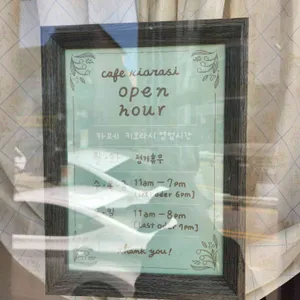 cafe kiarasi
open
hour
카페 키로라시 영업시간
정기휴무
11am – 7pm
[last order 6pm]
11am – 8pm
[last order 7pm]
Thank you!